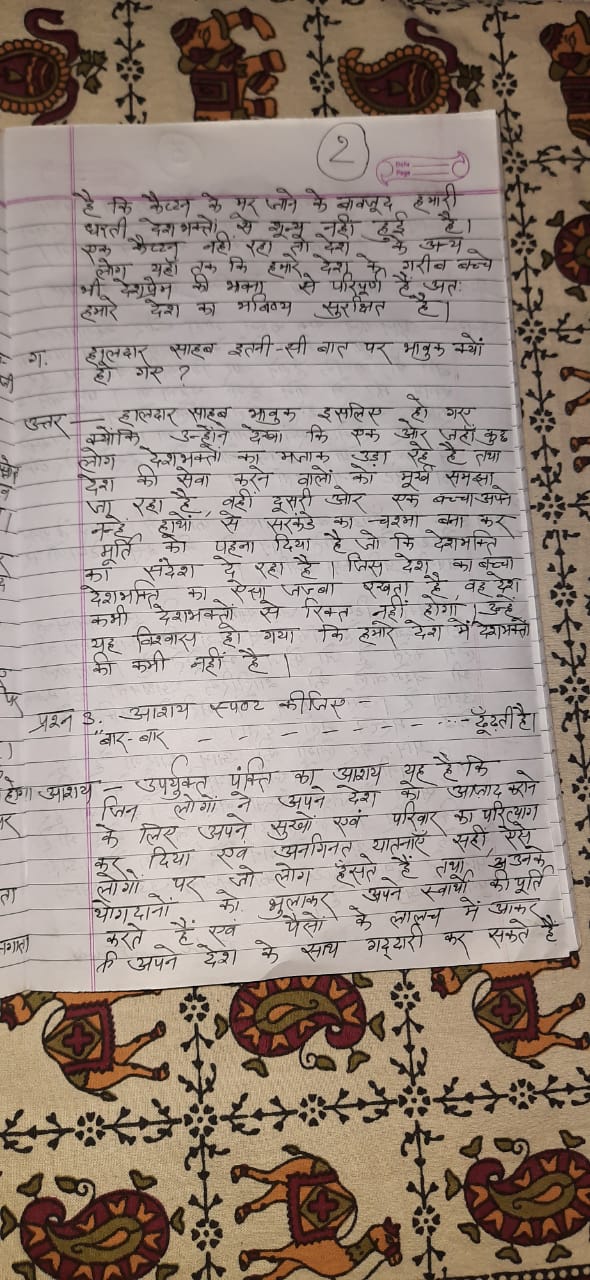 2
Date
Page
है कि कैप्टन के मर जाने के बावजूद हमारी
धरती देशभक्तों से शून्य नहीं हुई है।
एक कैप्टन नहीं रहा तो देश के अन्य
लोग यहाँ तक कि हमारे देश के गरीब बच्चे
भी देशप्रेम की से परिपूर्ण है अतः
हमारे देश का भविष्य सुरक्षित है।
ग. हालदार साहब इतनी-सी बात पर भावुक क्यों
हो गए ?
उत्तर — हालदार साहब भावुक इसलिए हो गए
क्योंकि उन्होंने देखा कि एक ओर जहाँ कुछ
लोग देशभक्तों का मजाक उड़ा रहे है तथा
देश की सेवा करने वालों को मूर्ख समझा
जा रहा है, वहीं दूसरी ओर एक बच्चा अपने
नन्हें हाथों से सरकंडे का चश्मा बना कर
मूर्ति को पहना दिया है जो कि देशभक्ति
का संदेश दे रहा है। जिस देश का बच्चा
देशभक्ति का ऐसा जज्बा रखता है, वह देश
कभी देशभक्तों से रिक्त नहीं होगा। उन्हें
यह विश्वास हो गया कि हमारे देश में देशभक्तों
की कमी नहीं है।
प्रश्न 3. आशय स्पष्ट कीजिए -
"बार-बार - - - - - - - - - ढूँढ़ती है।
आशय - उपर्युक्त पंक्ति का आशय यह है कि
जिन लोगों ने अपने देश को आजाद कराने
के लिए अपने सुखों एवं परिवार का परित्याग
कर दिया एवं अनगिनत यातनाएँ सही, ऐसे
लोगों पर जो लोग हँसते हैं तथा उनके
योगदानों को भुलाकर अपने स्वार्थों की पूर्ति
करते हैं एवं पैसों के लालच में आकर
अपने देश के साथ गद्दारी कर सकते हैं